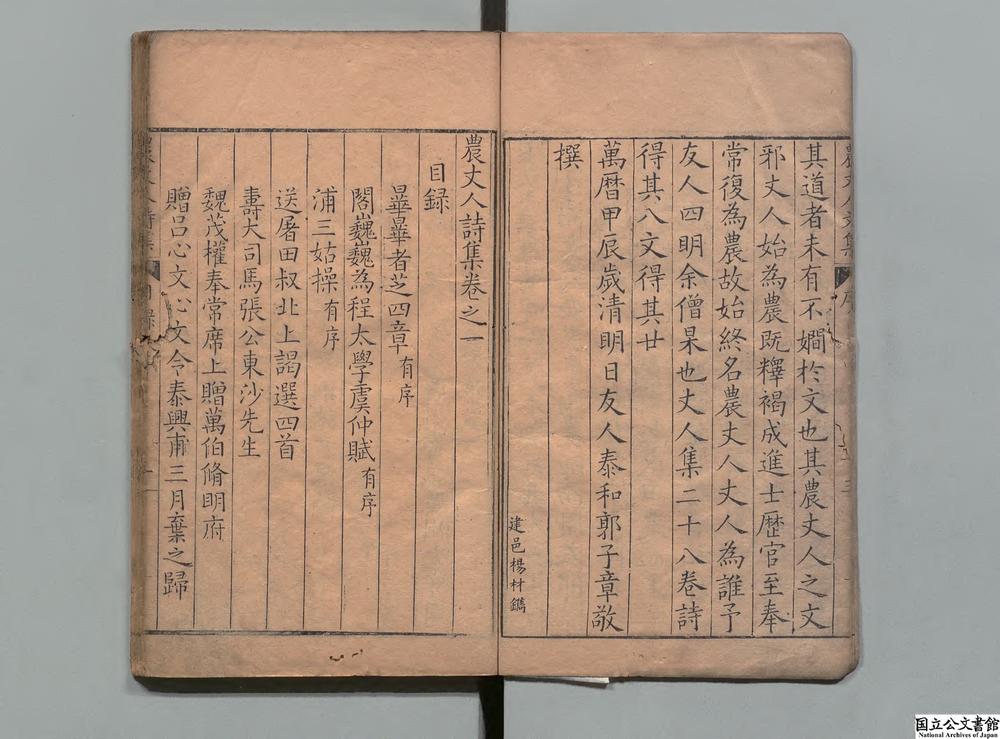 其道者未有不嫺於文也其農丈人之文
邪丈人始為農既釋褐成進士歷官至奉
常復為農故始終名農丈人丈人為誰予
友人四明余僧杲也丈人集二十八卷詩
得其八文得其廿
萬曆甲辰歲清明日友人泰和郭子章敬
撰
建邑楊材鐫
農丈人詩集卷之一
目録
㽮㽮者芝四章有序
閣巍巍為程太學虞仲賦有序
浦三姑操有序
送屠田叔北上謁選四首
壽大司馬張公東沙先生
魏茂權奉常席上贈萬伯脩明府
贈呂心文心文令泰興甫三月棄之歸
国立公文書館
National Archives of Japan